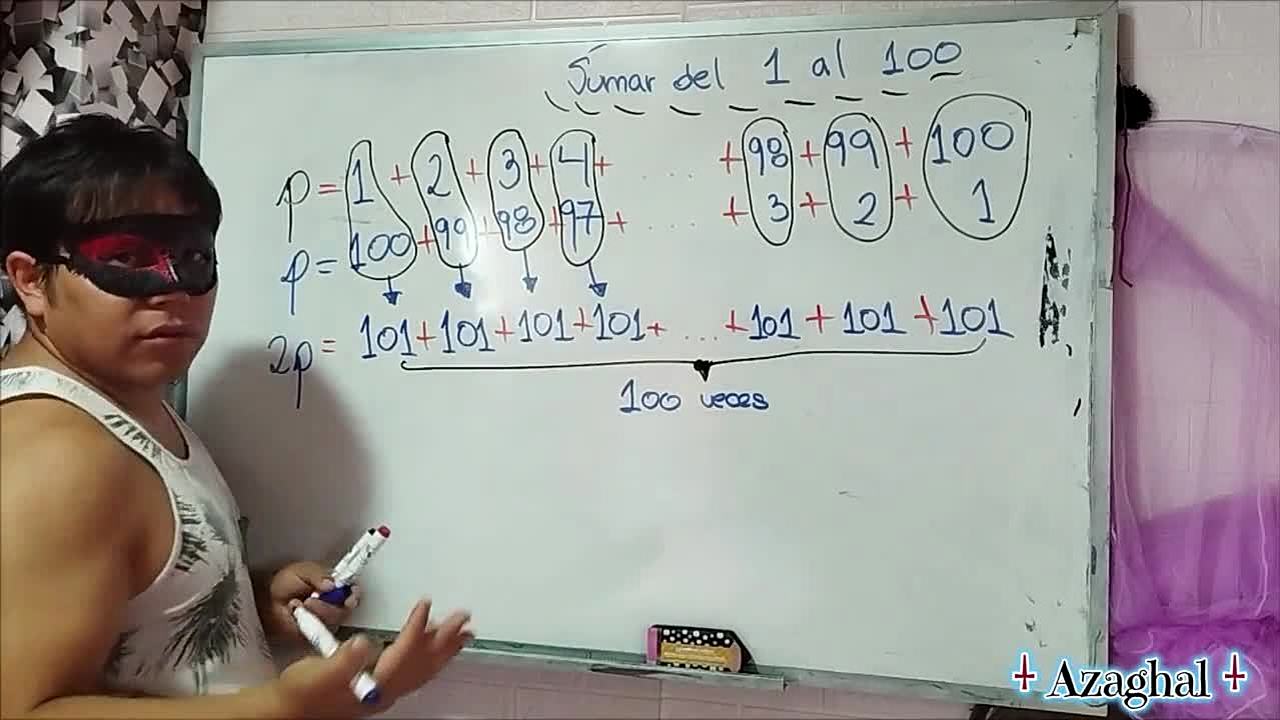 Sumar del 1 al 100
p = 1 + 2 + 3 + 4 + ..... + 98 + 99 + 100
p = 100 + 99 + 98 + 97 + ..... + 3 + 2 + 1
2p = 101 + 101 + 101 + 101 + ... + 101 + 101 + 101
100 veces
Azaghal